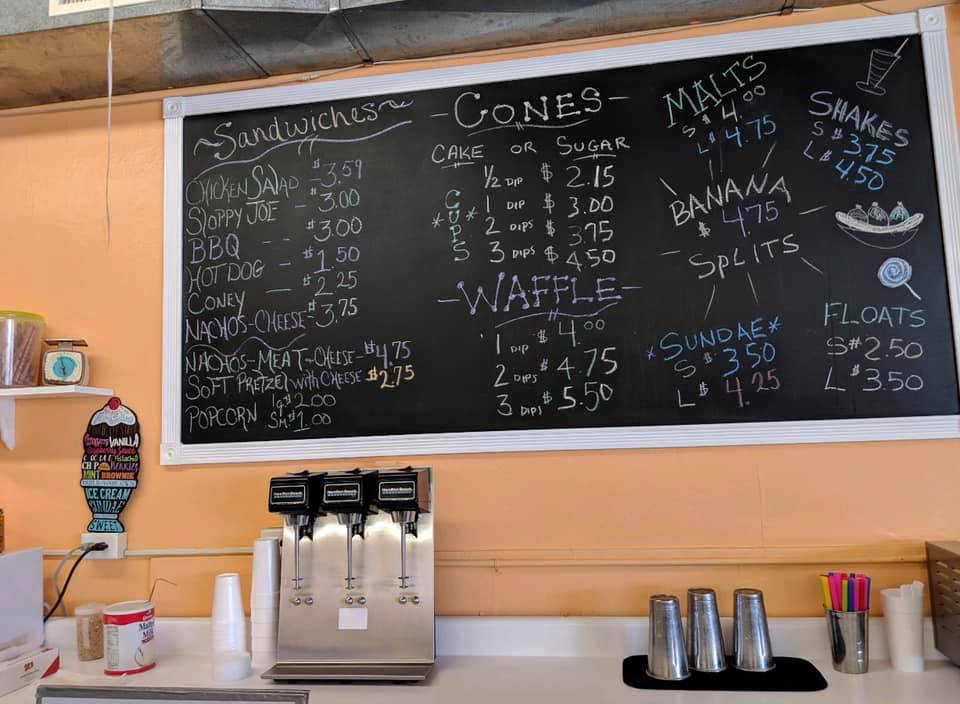 ~Sandwiches~
CHICKEN SALAD $3.59
SLOPPY JOE - $3.00
BBQ -- $3.00
HOT DOG - $1.50
CONEY - $2.25
NACHOS-CHEESE- $3.75
NACHOS-MEAT-CHEESE- $4.75
SOFT PRETZEL with CHEESE $2.75
POPCORN lg $2.00
Sm $1.00
-CONES-
CAKE OR SUGAR
*CUPS*
1/2 DIP $2.15
1 DIP $3.00
2 DIPS $3.75
3 DIPS $4.50
-WAFFLE-
1 DIP $4.00
2 DIPS $4.75
3 DIPS $5.50
MALTS
S $4.00
L $4.75
SHAKES
S $3.75
L $4.50
BANANA
$4.75
SPLITS
*SUNDAE*
S $3.50
L $4.25
FLOATS
S $2.50
L $3.50
VANILLA
MINT BROWNIE
ICE CREAM
SWEET
Hamilton Beach
Hamilton Beach
Hamilton Beach
Malted
Milk